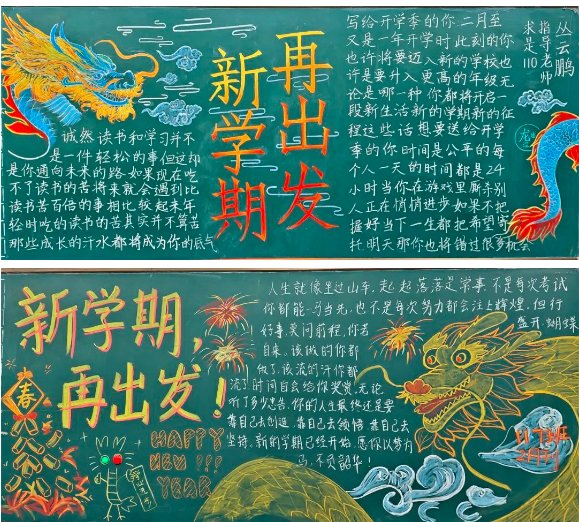 新学期
再出发
写给开学季的你 二月至
又是一年开学时 此刻的你
也许将要迈入新的学校也
许是要升入更高的年级无
论是哪一种 你都将开启一
段新生活新的学期新的征
程这些话想要送给开学
季的你时间是公平的每
个人一天的时间都是24
小时当你在游戏里厮杀别
人正在悄悄进步如果不把
握好当下一生都把希望寄
托明天那你也将错过很多机会
丛云鹏
指导老师
求是110
诚然读书和学习并不
是一件轻松的事但这却
是你通向未来的路如果现在吃
不了读书的苦将来就会遇到比
读书苦百倍的事相比较起来年
轻时吃的读书的苦其实并不算苦
那些成长的汗水都将成为你的底气
新学期,
再出发!
人生就像坐过山车,起起落落是常事 不是每次考试
你都能一马当先,也不是每次努力都会注上辉煌,但行
好事,莫问前程,你若盛开,蝴蝶
自来。该做的你都
做了,该流的汗你都
流了,时间自会给你奖赏,无论
听了多少忠告,你的人生最终还是要
靠自己去创造,靠自己去领悟,靠自己去
坚持,新的学期已经开始,愿你以梦为
马,不负韶华!
春
HAPPY
NEW !!!
YEAR
117班
2月刊